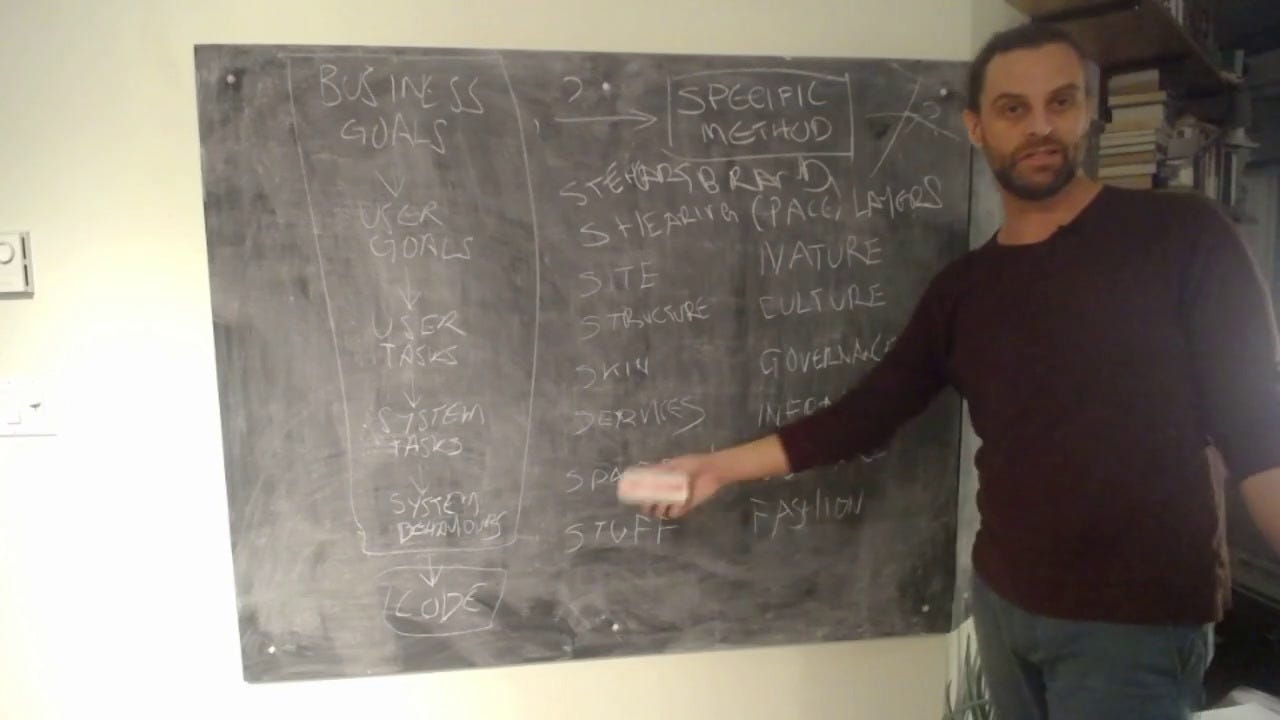 BUSINESS
GOALS
USER
GOALS
USER
TASKS
SYSTEM
TASKS
SYSTEM
BEHAVIOURS
CODE
?
SPECIFIC
METHOD
?
STEWART BRAND,
SHEARING (PACE) LAYERS
SITE
NATURE
STRUCTURE
CULTURE
SKIN
GOVERNANC
SERVICES
INFRA
SPA
STUFF
FASHION